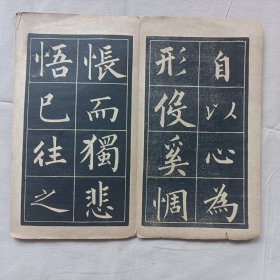 自以心為
形役奚惆
悵而獨悲
悟已往之